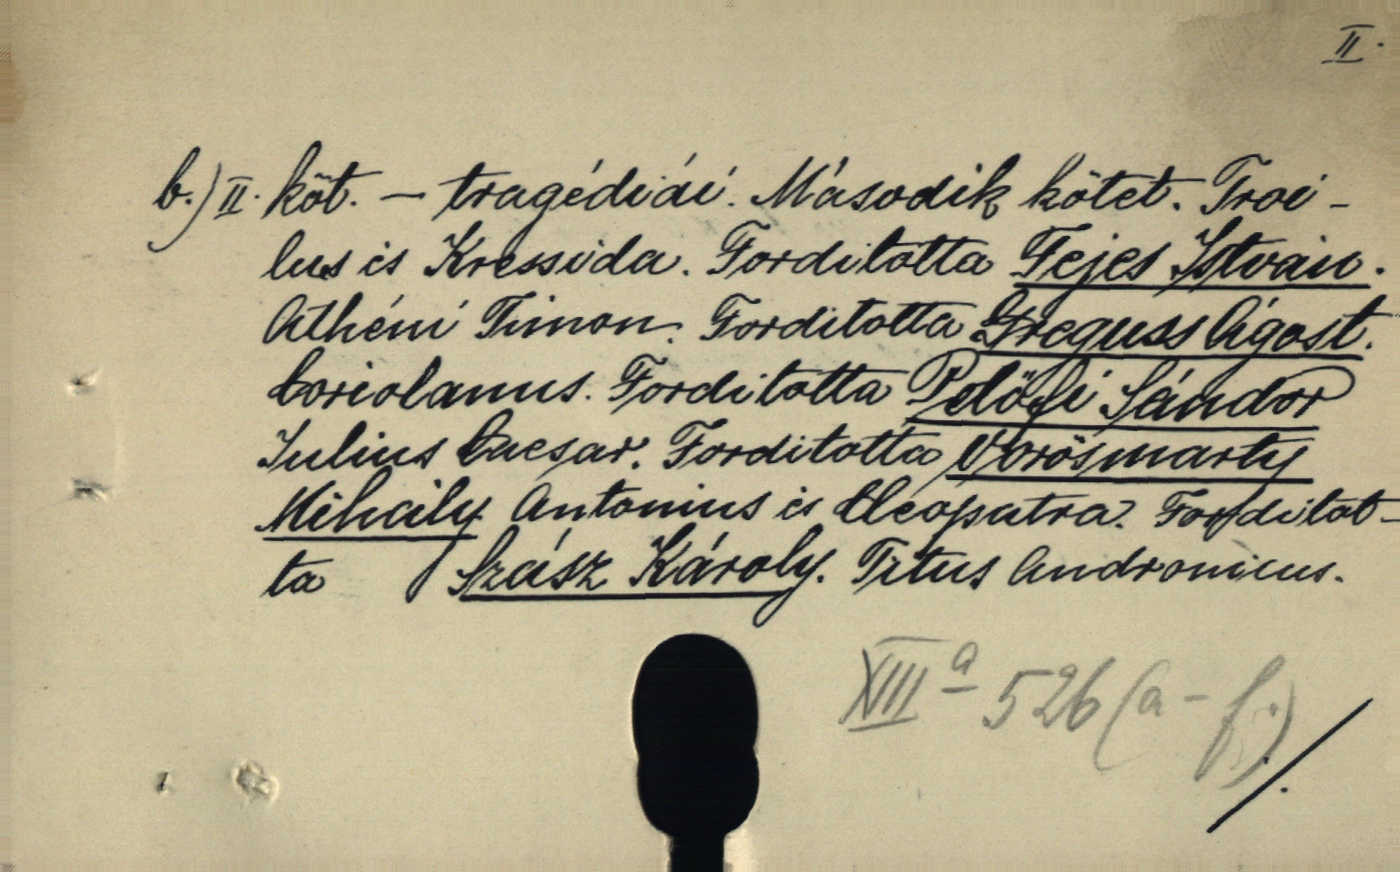 II.
b.) II. köt. – tragédiái. Második kötet. Troi-
lus és Kressida. Forditotta Fejes István.
Athéni Timon. Forditotta Greguss Ágost.
Coriolanus. Forditotta Petőfi Sándor
Julius Caesar. Forditotta Vörösmarty
Mihály Antonius és Cleopatra. Forditot-
ta Szász Károly. Titus Andronicus.
XIII a 526 (a-f.)